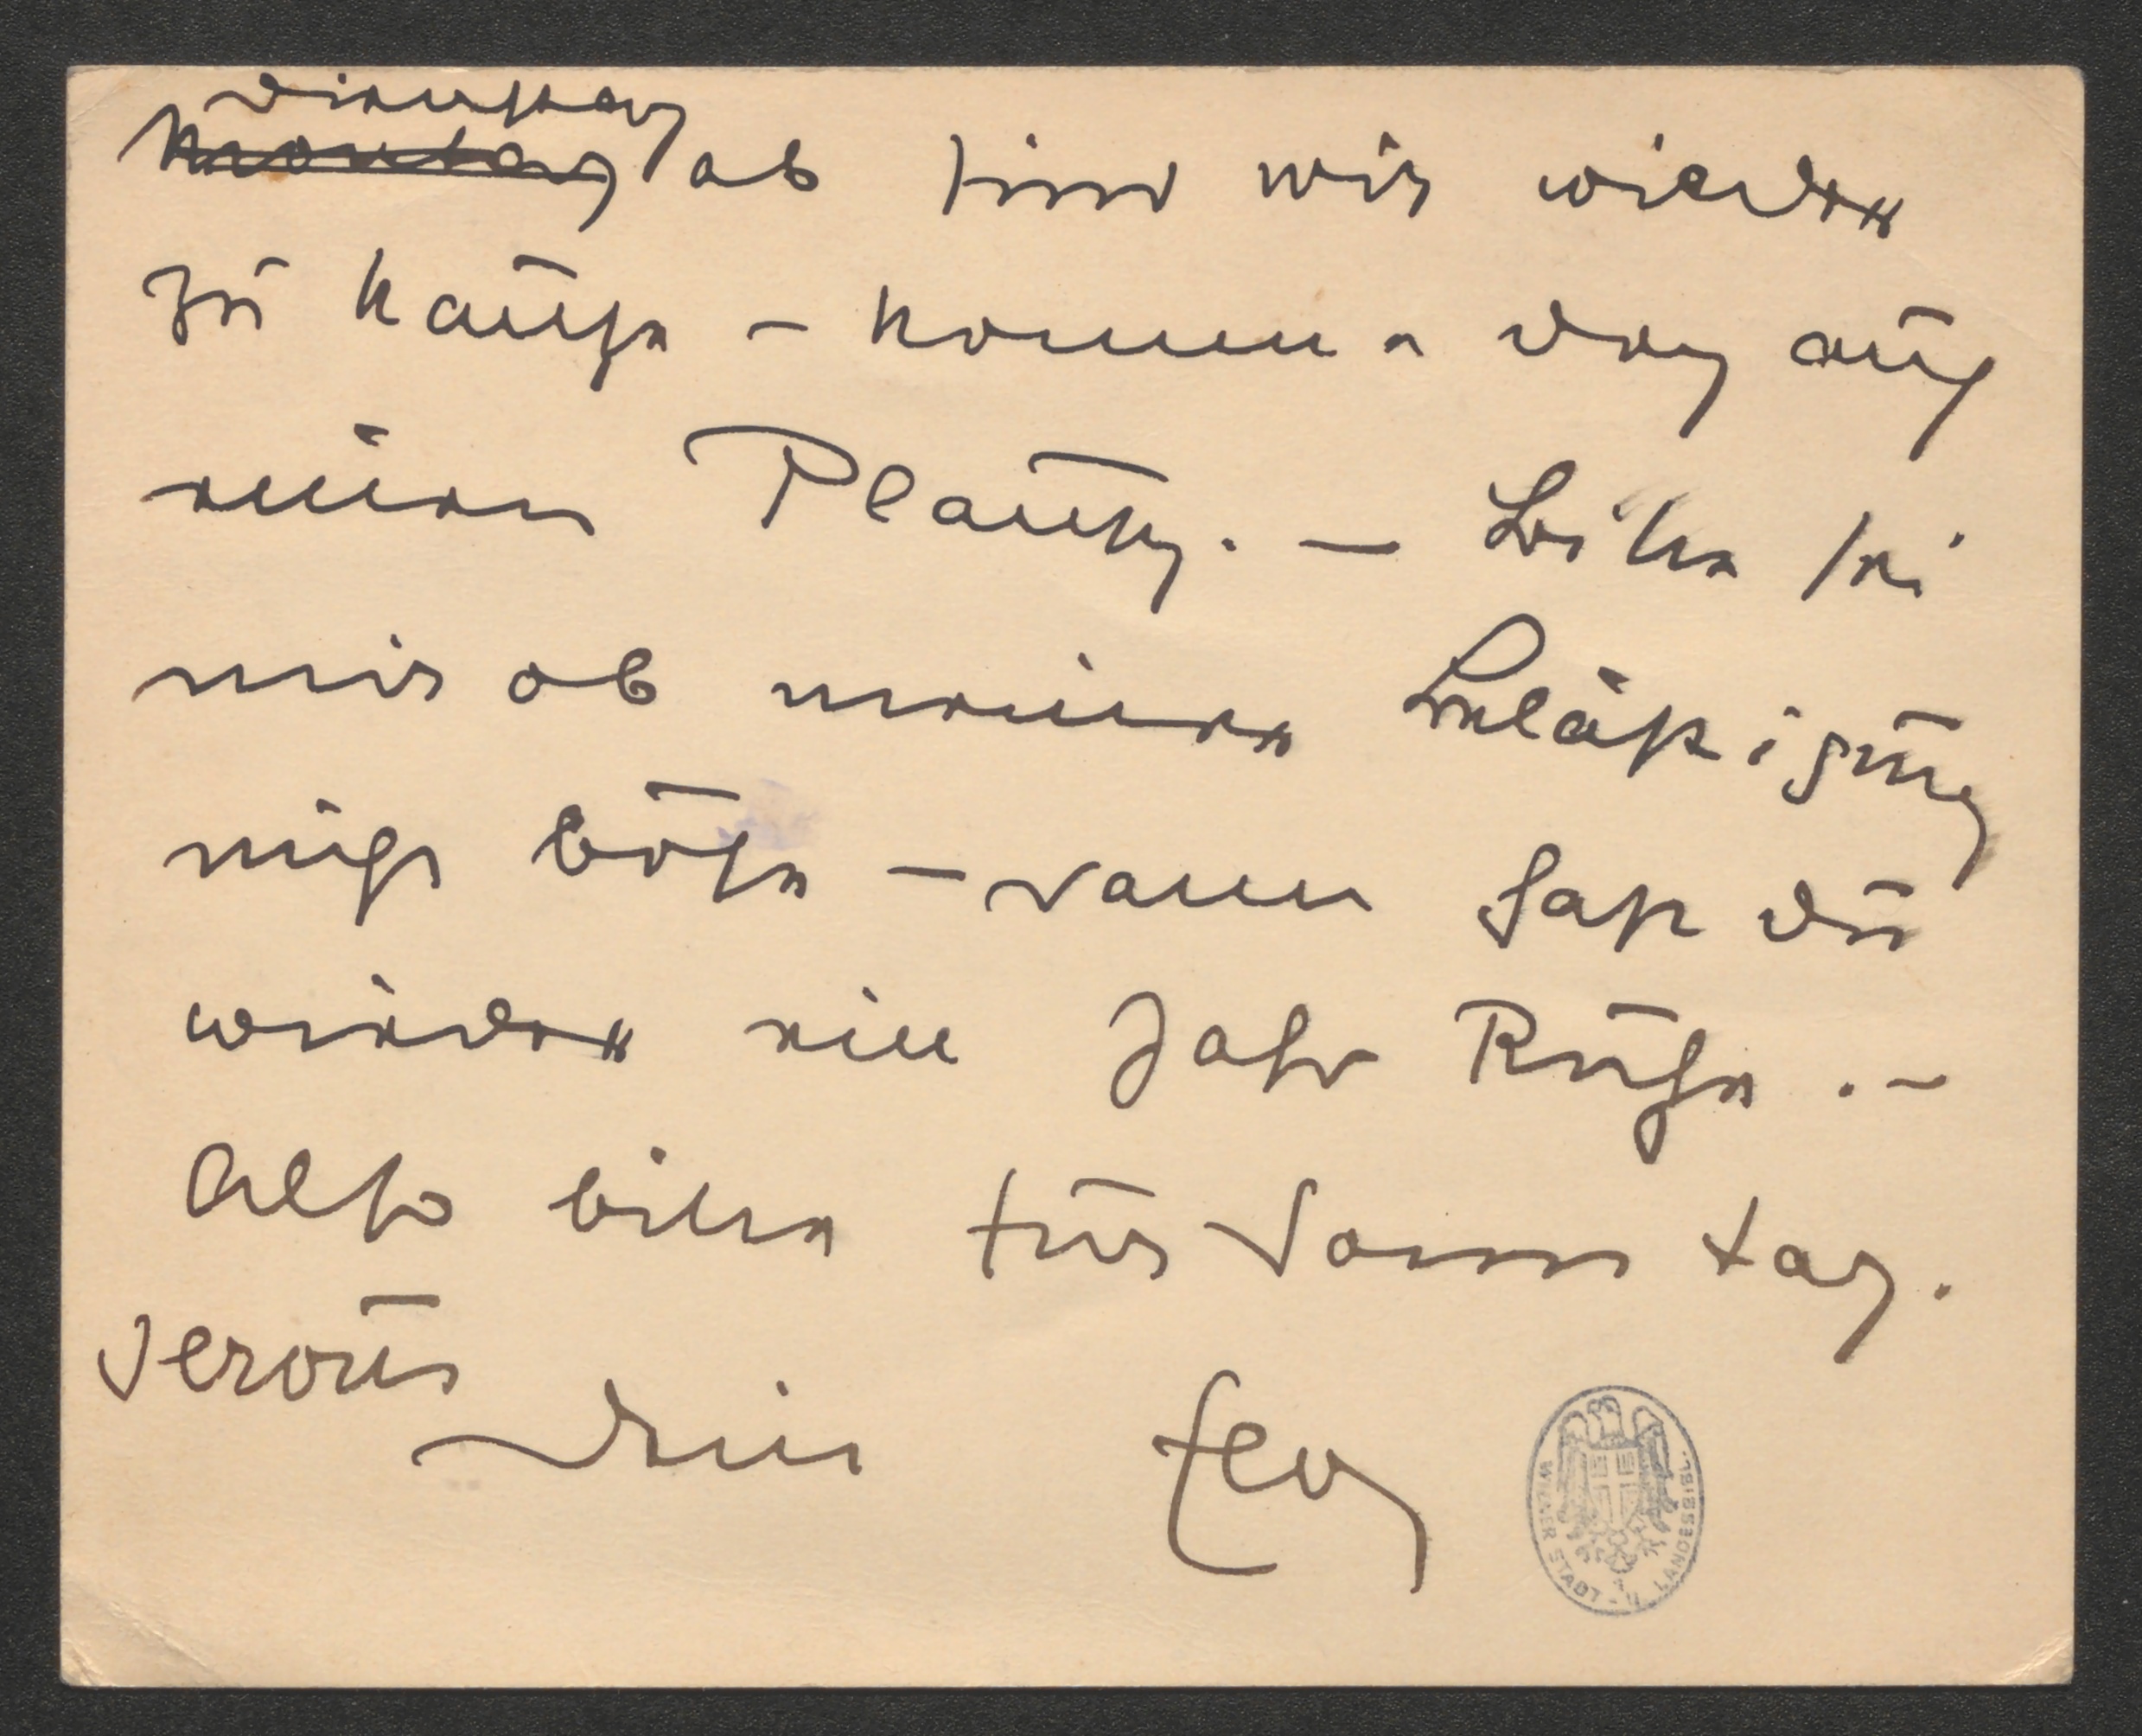 Dienstag
Montag ab sind wir wieder
zu hause – komme doch auf
einen Plausch. – Bitte sei
mir ob meiner Belästigung
nicht böse – dann hast du
wieder ein Jahr Ruhe. –
Also bitte tue Samstag.
Servus
dein
WIENER STADT - U. LANDESBIBL.